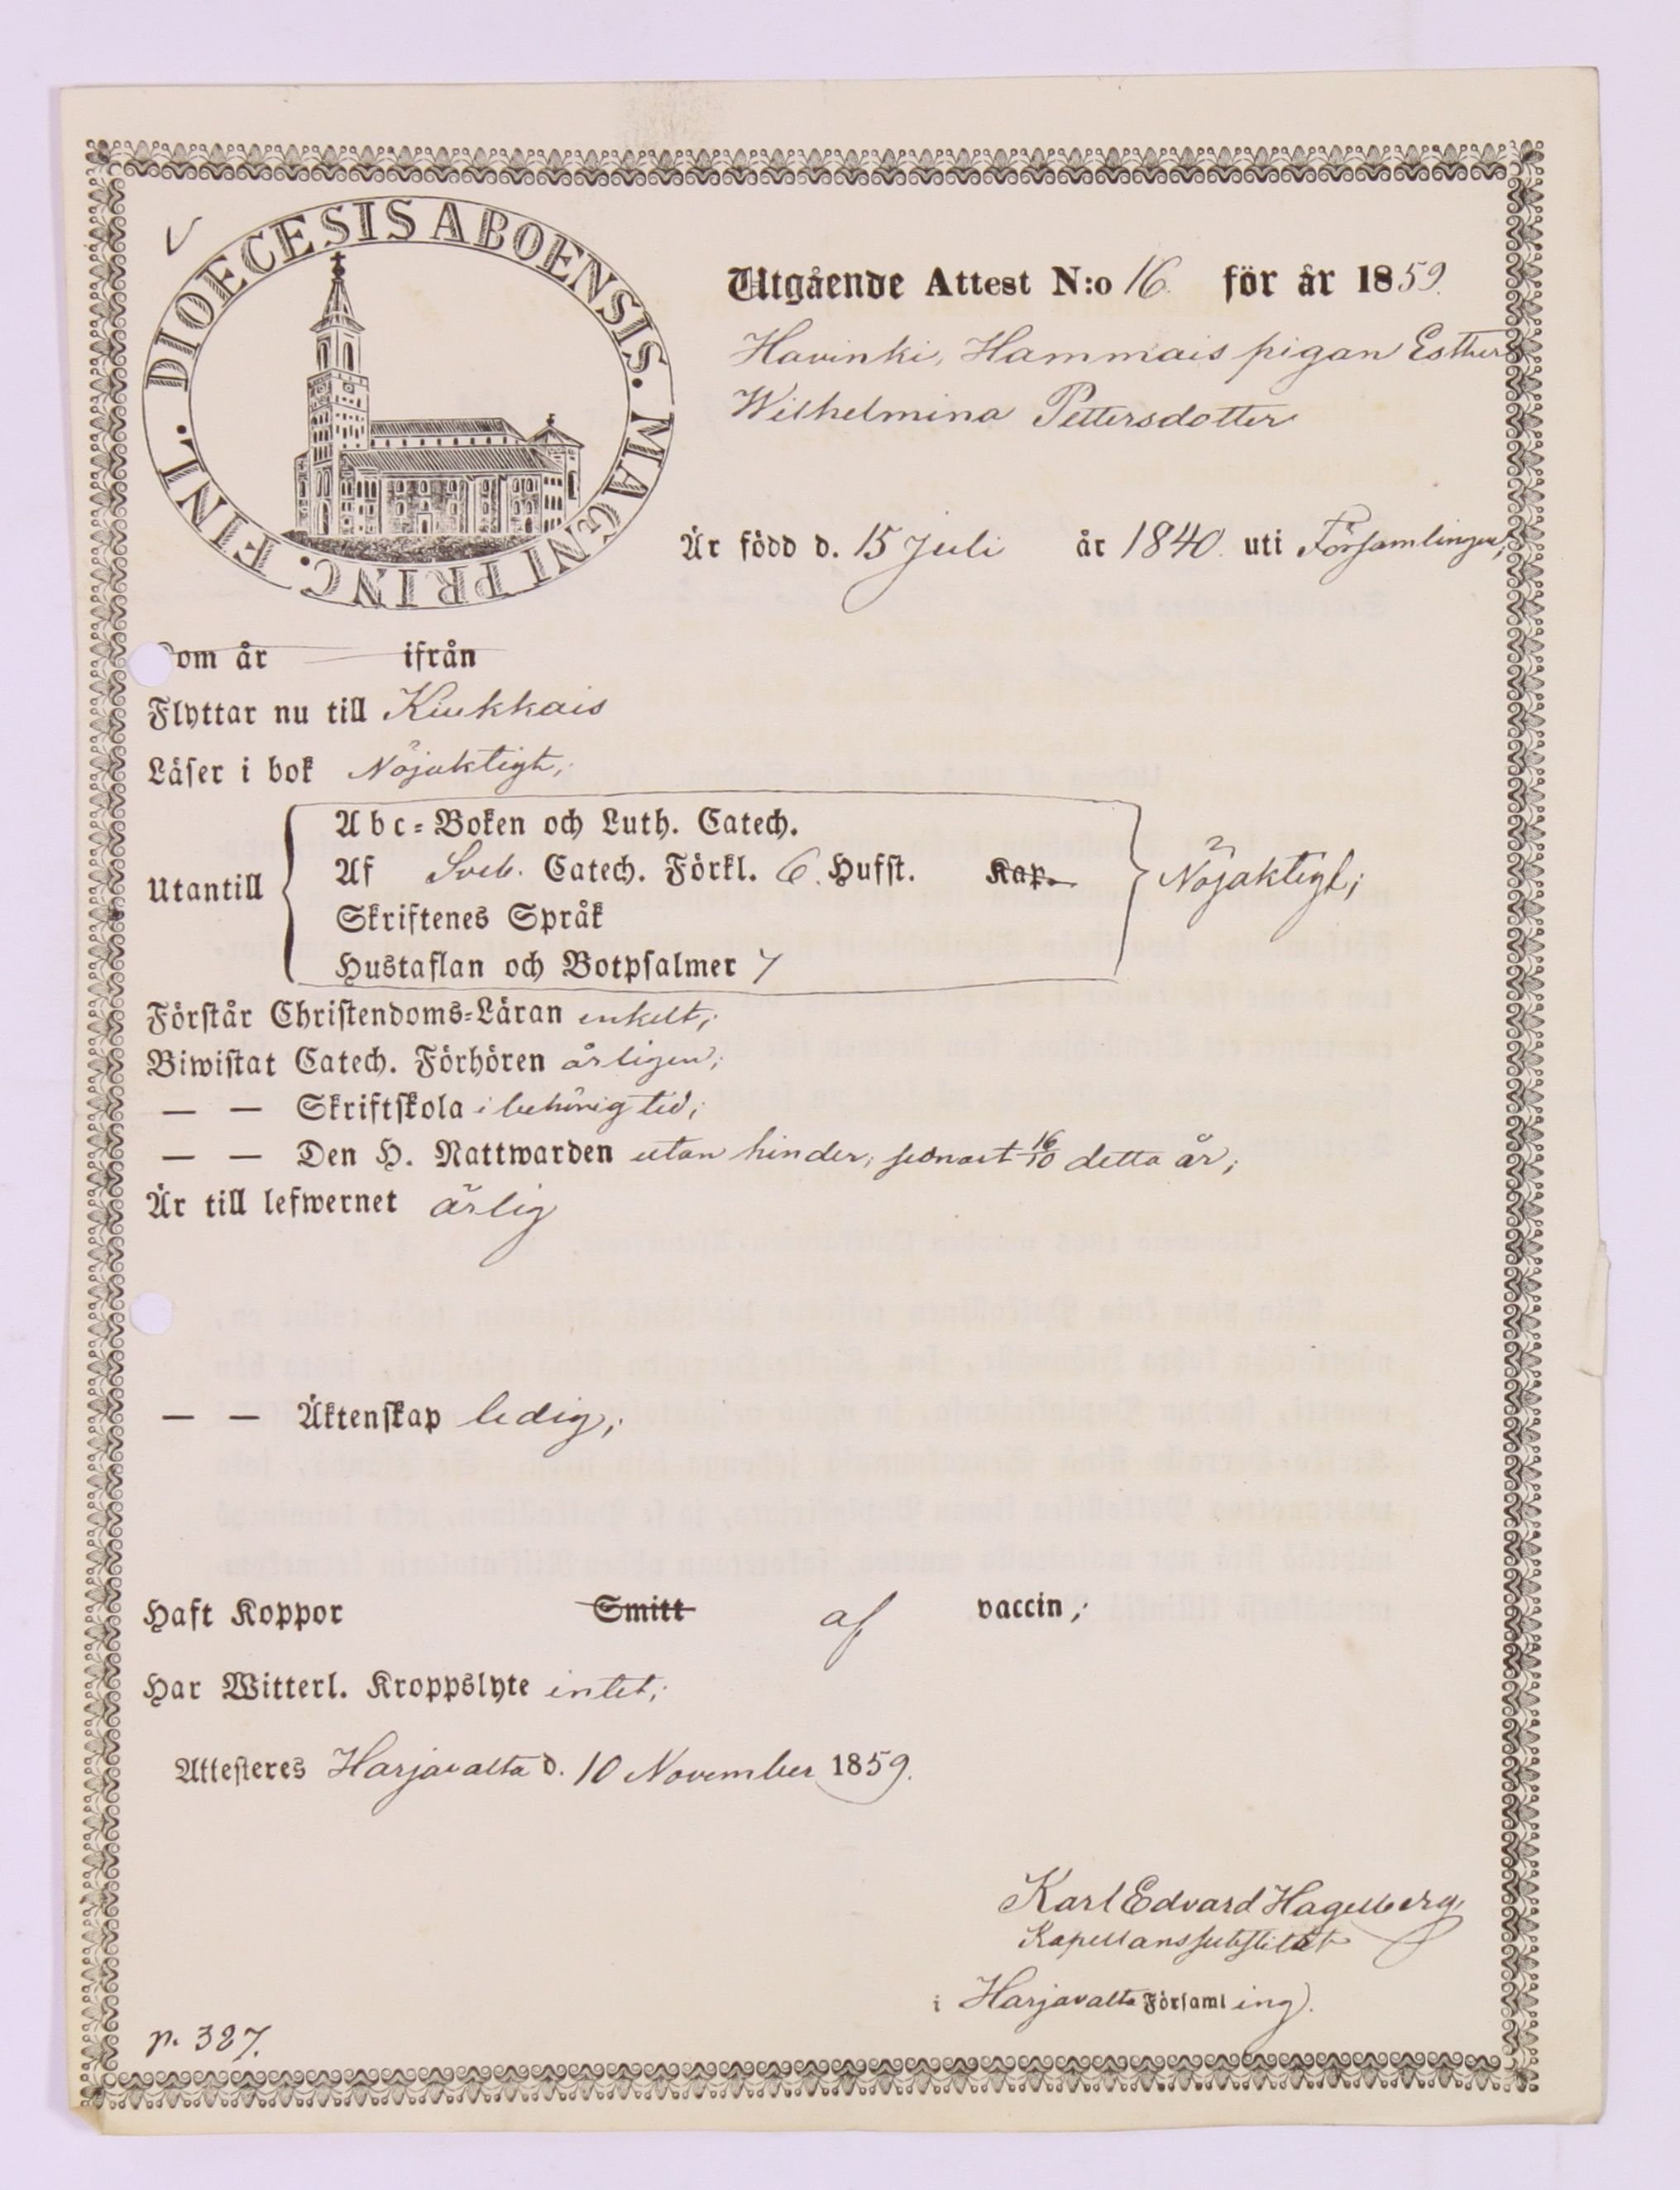 DIOECESIS ABOENSIS. MAGNI PRINC. FINL.
Utgående Attest N:o 16. för år 1859.
Havinki, Hammais pigan Esther
Wilhelmina Pettersdotter
Är född d. 15 Juli år 1840. uti Församlingen,
om år ifrån
Flyttar nu till Kiukkais
Läser i bok Nöjaktigt;
Utantill
Abc-Boken och Luth. Catech.
Af Sveb. Catech. Förkl. 6. Hufst. Kap.
Skriftenes Språk
Hustaflan och Botpsalmer 7
Nöjaktigt;
Förstår Christendoms-Läran enkelt;
Biwistat Catech. Förhören årligen;
— — Skriftskola i behörig tid;
— — Den H. Nattwarden utan hinder, senast 16/10 detta år;
Är till lefwernet ärlig
— — Äktenskap ledig;
Haft Koppor Smitt af vaccin;
Har Witterl. Kroppslyte intet;
Attesteres Harjavalta d. 10 November 1859.
Karl Edvard Hagelberg,
Kapellanssubstitut
i Harjavalta Församling.
p. 327.